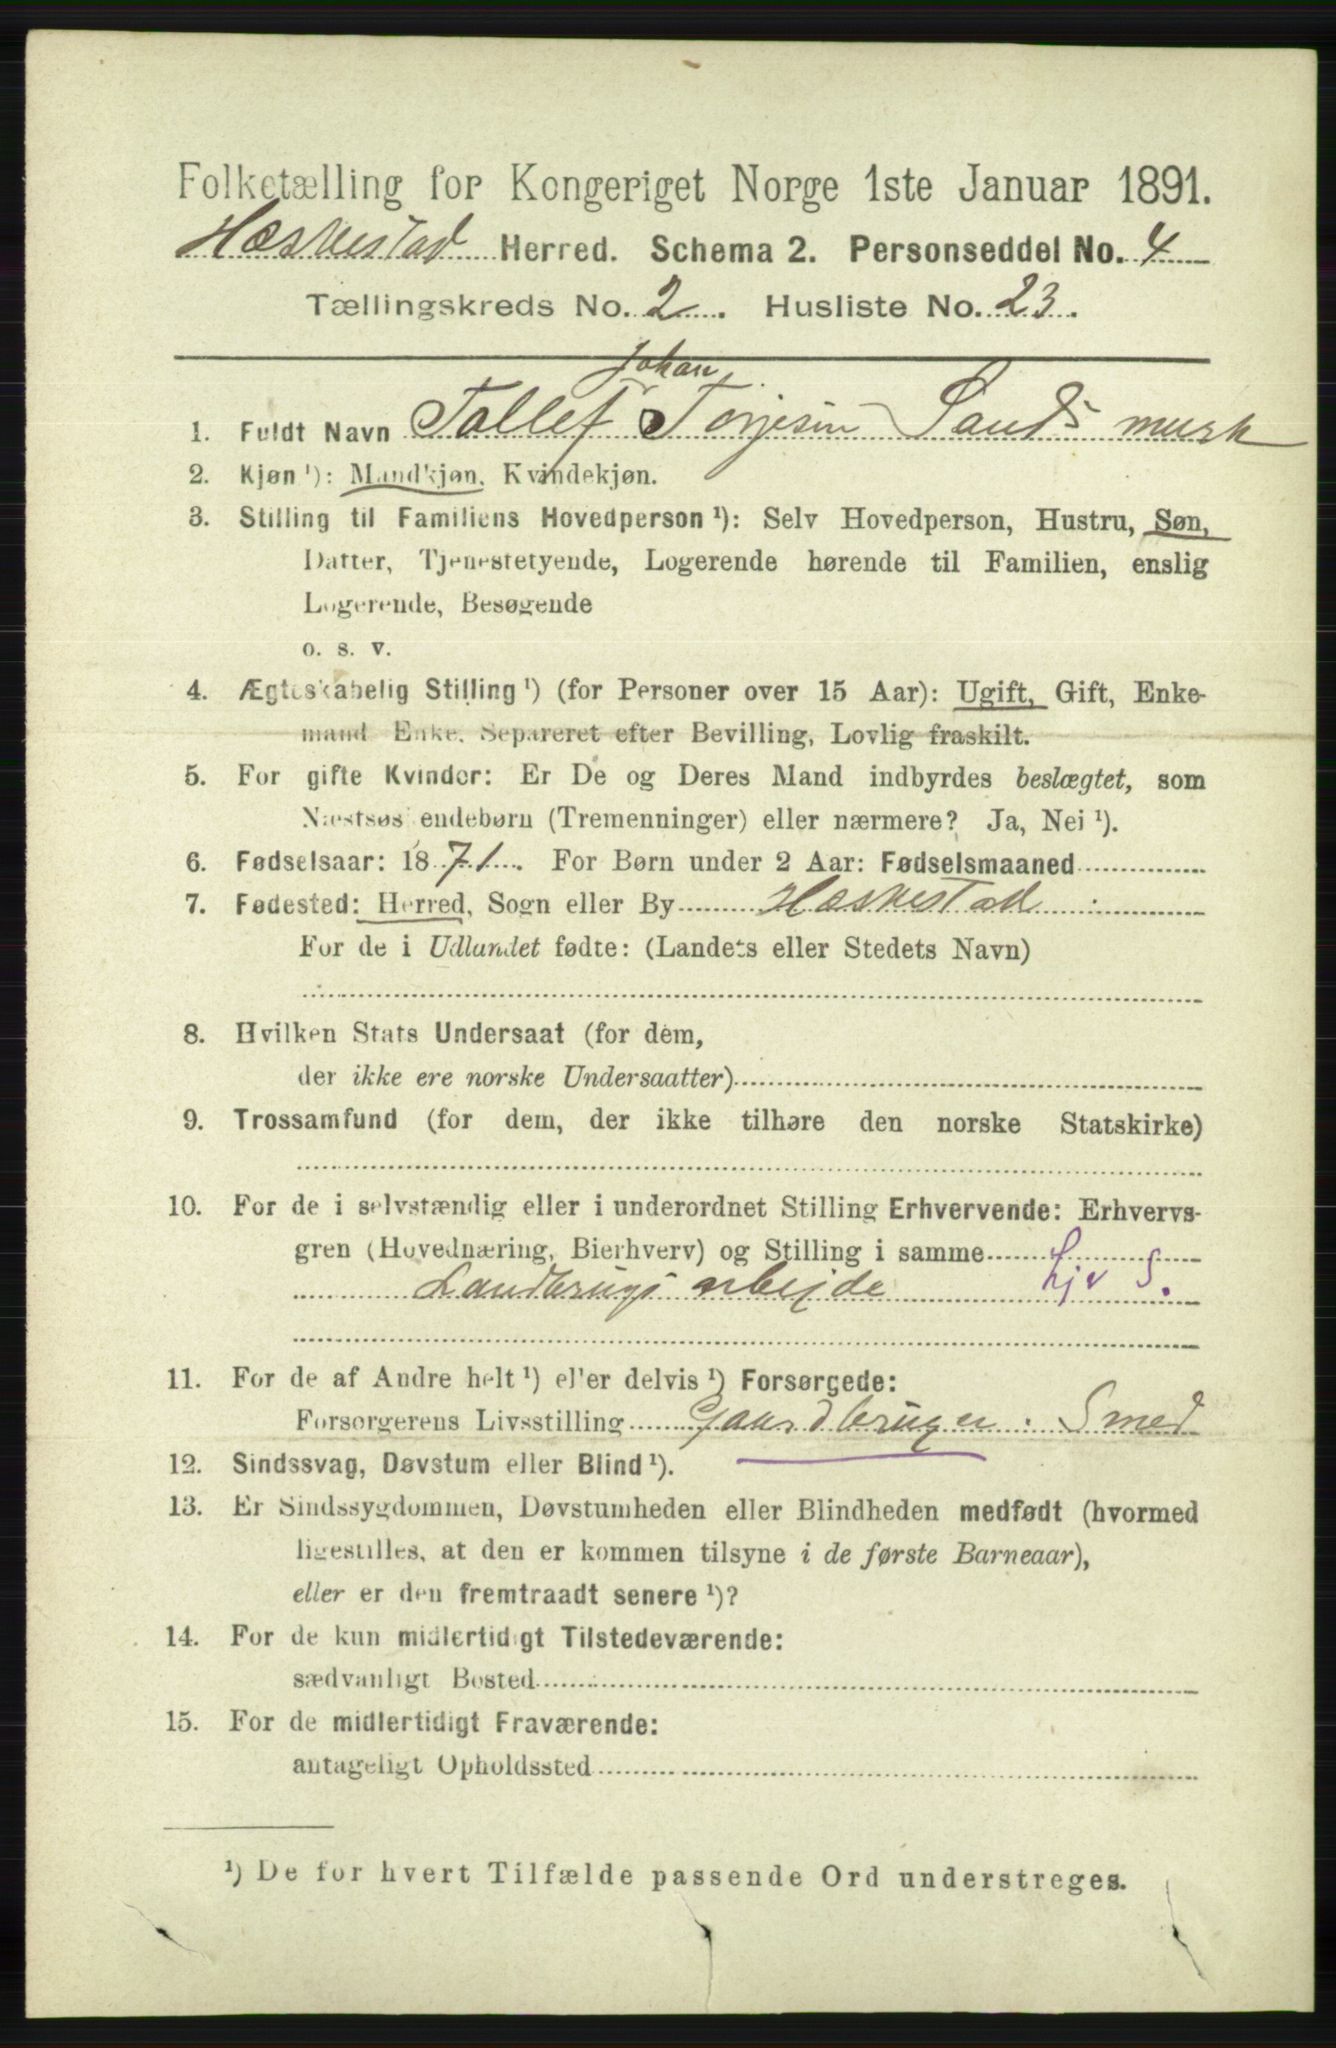 Folketælling for Kongeriget Norge 1ste Januar 1891.
Hæskestad Herred. Schema 2. Personseddel No. 4
Tællingskreds No. 2. Husliste No. 23.
Johan
1. Fuldt Navn Tallef Torjesen Sandsmark
2. Kjøn ¹): Mandkjøn, Kvindekjøn.
3. Stilling til Familiens Hovedperson ¹): Selv Hovedperson, Hustru, Søn,
Datter, Tjenestetyende, Logerende hørende til Familien, enslig
Logerende, Besøgende
o. s. v.
4. Ægteskabelig Stilling ¹) (for Personer over 15 Aar): Ugift, Gift, Enke-
mand, Enke, Separeret efter Bevilling, Lovlig fraskilt.
5. For gifte Kvinder: Er De og Deres Mand indbyrdes beslægtet, som
Næstsøskendebørn (Tremenninger) eller nærmere? Ja, Nei ¹).
6. Fødselsaar: 1871. For Børn under 2 Aar: Fødselsmaaned
7. Fødested: Herred, Sogn eller By Hæskestad
For de i Udlandet fødte: (Landets eller Stedets Navn)
8. Hvilken Stats Undersaat (for dem,
der ikke ere norske Undersaatter)
9. Trossamfund (for dem, der ikke tilhøre den norske Statskirke)
10. For de i selvstændig eller i underordnet Stilling Erhvervende: Erhvervs-
gren (Hovednæring, Bierhverv) og Stilling i samme
Landbrugs arbejde hjv S.
11. For de af Andre helt ¹) eller delvis ¹) Forsørgede:
Forsørgerens Livsstilling Gaardbruger. Smed
12. Sindssvag, Døvstum eller Blind ¹).
13. Er Sindssygdommen, Døvstumheden eller Blindheden medfødt (hvormed
ligestilles, at den er kommen tilsyne i de første Barneaar),
eller er den fremtraadt senere ¹)?
14. For de kun midlertidigt Tilstedeværende:
sædvanligt Bosted
15. For de midlertidigt Fraværende:
antageligt Opholdssted
¹) De for hvert Tilfælde passende Ord understreges.